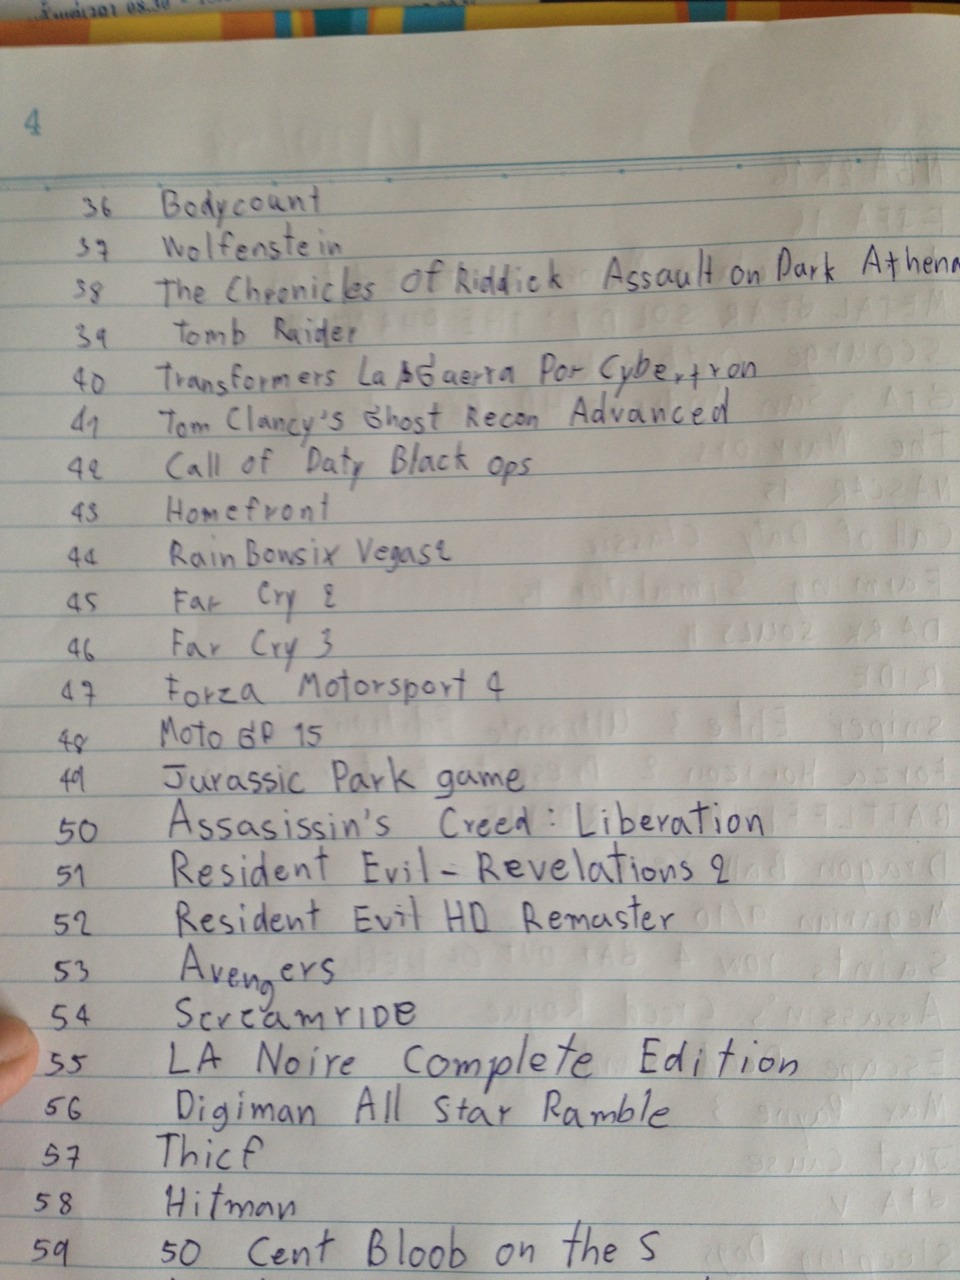 4
36 Bodycount
37 Wolfenstein
38 The Chronicles Of Riddick Assault on Dark Athena
39 Tomb Raider
40 Transformers La Gaerra Por Cybertron
41 Tom Clancy's Ghost Recon Advanced
42 Call of Daty Black ops
43 Homefront
44 Rain Bowsix Vegas2
45 Far Cry 2
46 Far Cry 3
47 Forza Motorsport 4
48 Moto GP 15
49 Jurassic Park game
50 Assasissin's Creed: Liberation
51 Resident Evil - Revelations 2
52 Resident Evil HD Remaster
53 Avengers
54 ScreamRIDE
55 LA Noire Complete Edition
56 Digiman All Star Ramble
57 Thief
58 Hitman
59 50 Cent Bloob on the S